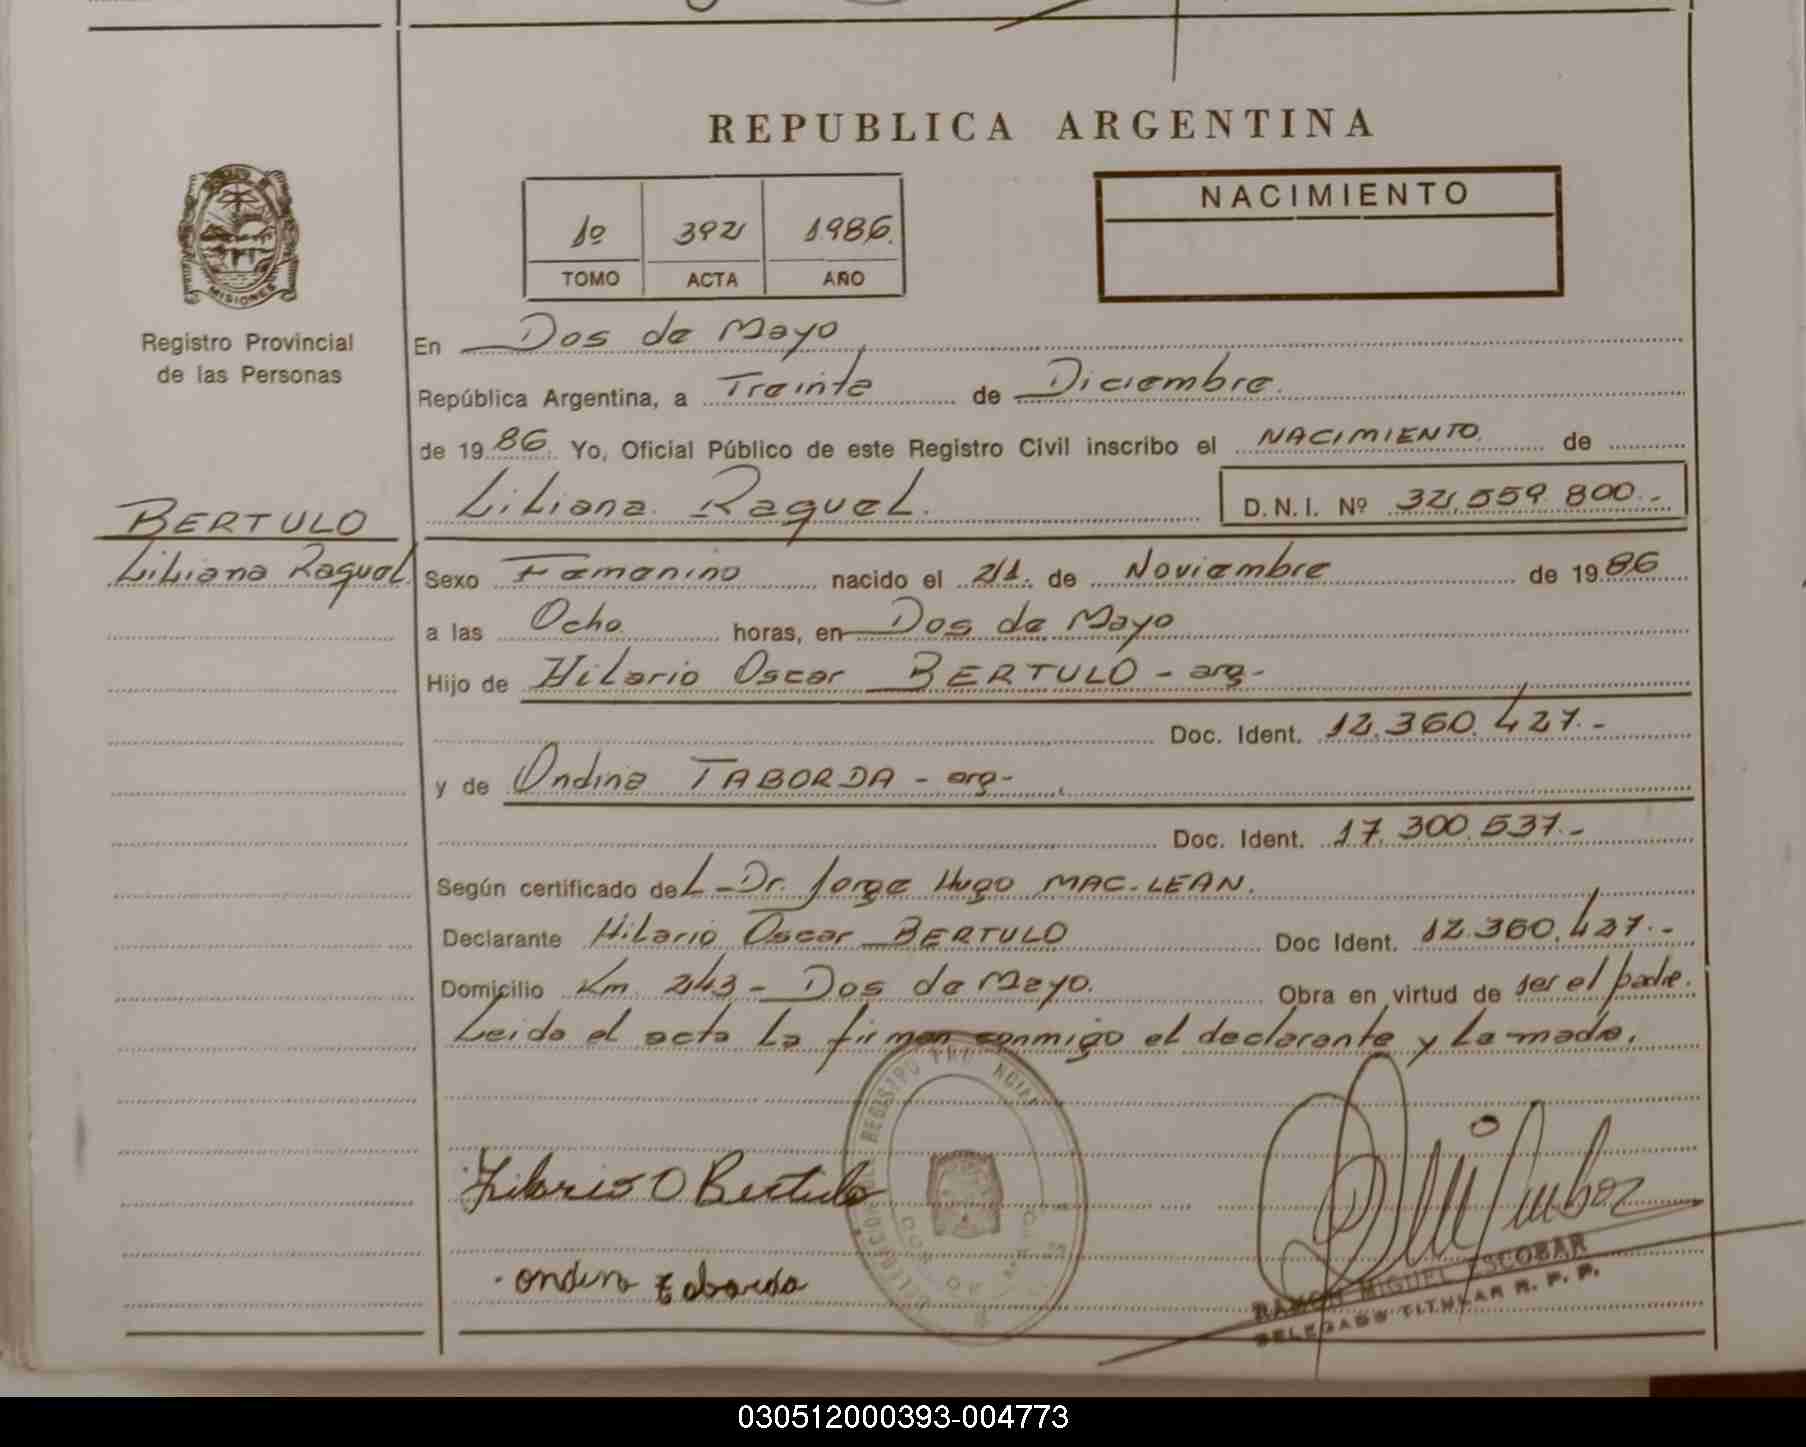 REPUBLICA ARGENTINA
MISIONES
Registro Provincial
de las Personas
1º 392 1986.
TOMO ACTA AÑO
NACIMIENTO
En Dos de Mayo
República Argentina, a Treinta de Diciembre.
de 1986. Yo, Oficial Público de este Registro Civil inscribo el NACIMIENTO. de
Liliana Raquel. D.N.I. Nº 32.559.800.-
BERTULO
Liliana Raquel
Sexo Femenino nacido el 21. de Noviembre de 1986
a las Ocho horas, en Dos de Mayo
Hijo de Hilario Oscar BERTULO - arg-
Doc. Ident. 12.360.427.-
y de Ondina TABORDA - arg-
Doc. Ident. 17.300.537.-
Según certificado del - Dr. Jorge Hugo MAC-LEAN.
Declarante Hilario Oscar BERTULO Doc Ident. 12.360.427.-
Domicilio Km 243 - Dos de Mayo. Obra en virtud de ser el padre.
Leida el acta la firman conmigo el declarante y la madre.
Hilario O Bertulo
ondina taborda
RAMON MIGUEL ESCOBAR
DELEGADO TITULAR R. P. P.
030512000393-004773